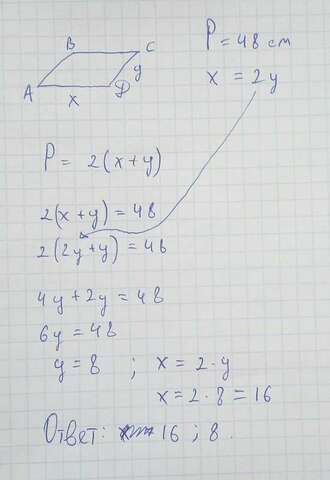 B C
A D
x y
P = 48 см
x = 2y
P = 2(x+y)
2(x+y) = 48
2(2y+y) = 48
4y + 2y = 48
6y = 48
y = 8 ; x = 2·y
x = 2·8 = 16
Ответ: 16 ; 8.